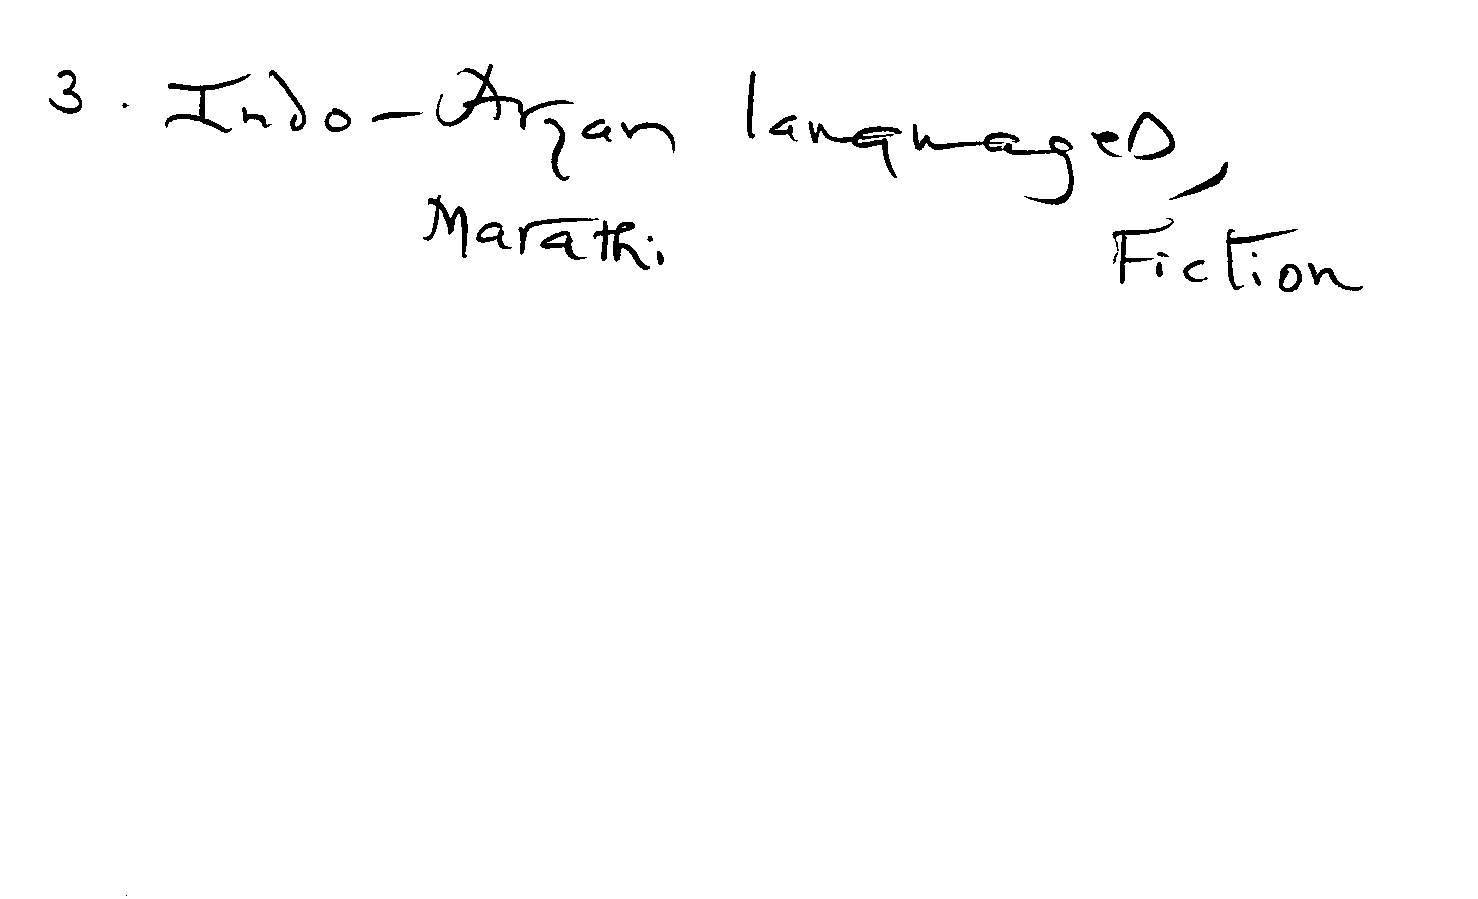 3. Indo-Aryan languages,
Marathi Fiction